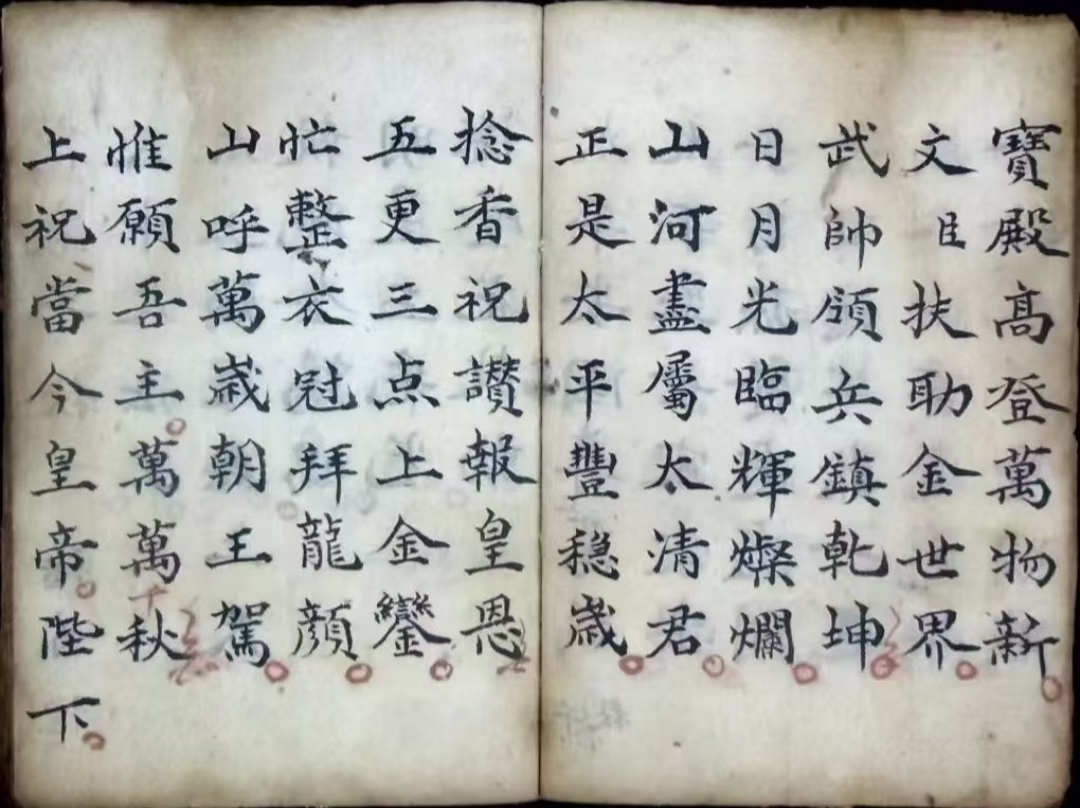 寶殿高登萬物新
文臣扶助金世界
武帥領兵鎮乾坤
日月光臨輝燦爛
山河盡屬太清君
正是太平豐稳歲
捻香祝讚報皇恩
五更三点上金鑾
忙整衣冠拜龍顏
山呼萬歲朝王駕
惟願吾主萬萬千秋
上祝當今皇帝陛下